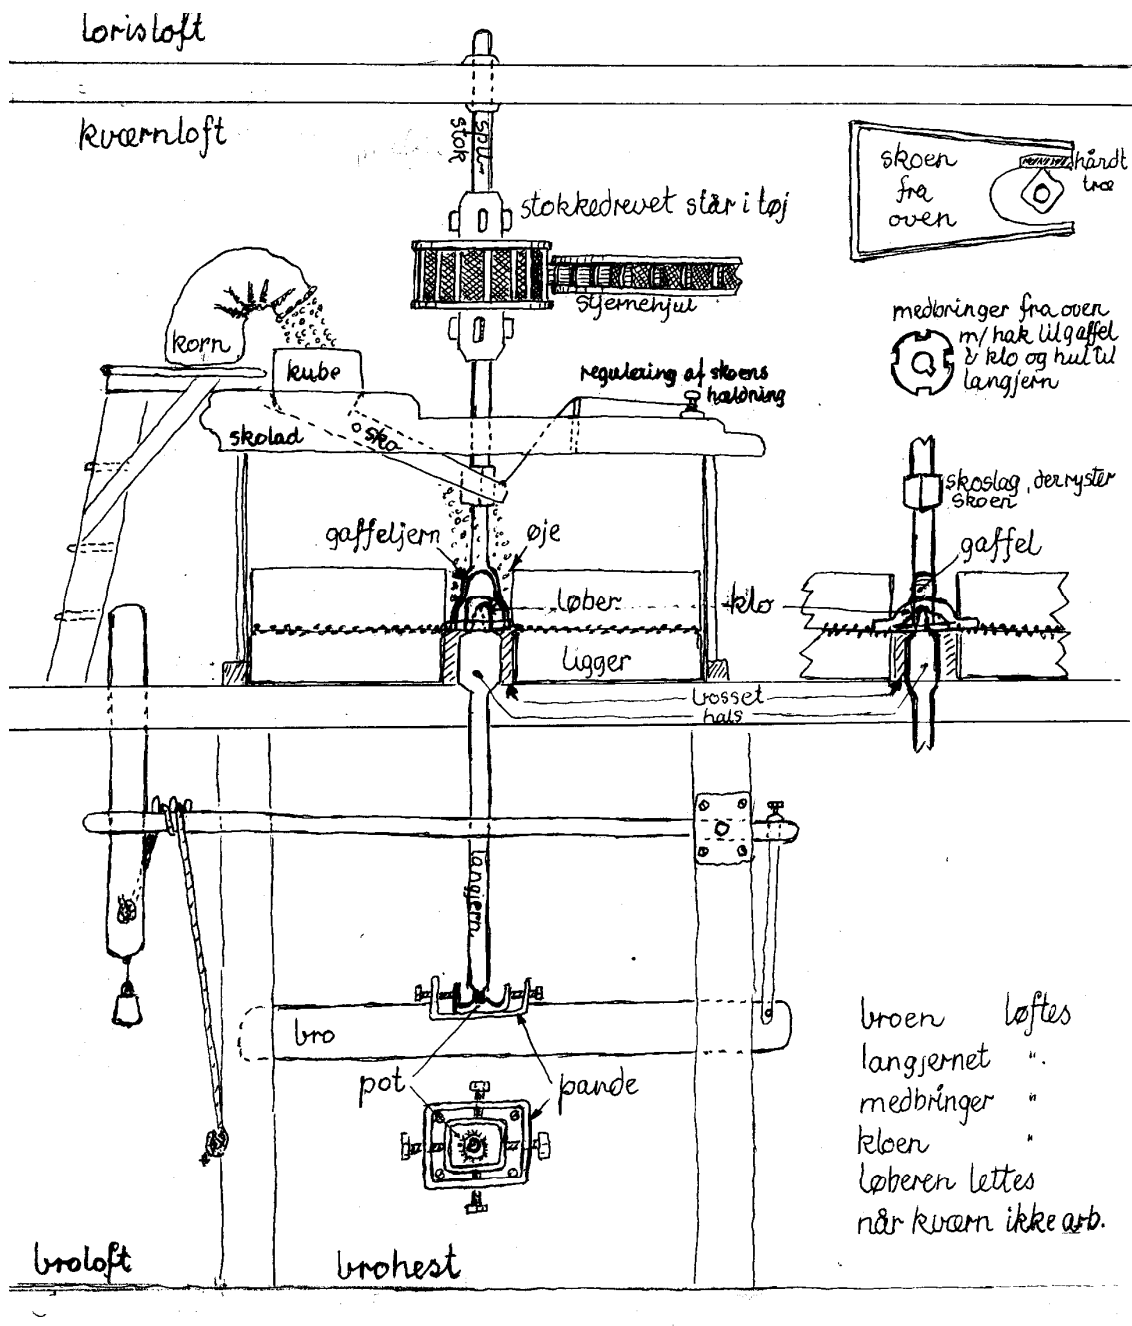 lorisloft
kværnloft
spil-
stok
stokkedrevet står i tøj
stjernehjul
skoen
fra
oven
hårdt
træ
medbringer fra oven
m/ hak til gaffel
& klo og hul til
langjern
korn
kube
regulering af skoens
hældning
skolad
sko
skoslag, der ryster
skoen
gaffeljern
øje
gaffel
løber
klo
ligger
bosset
hals
langjern
bro
pot
pande
broen løftes
langjernet ".
medbringer "
kloen "
løberen lettes
når kværn ikke arb.
broloft
brohest